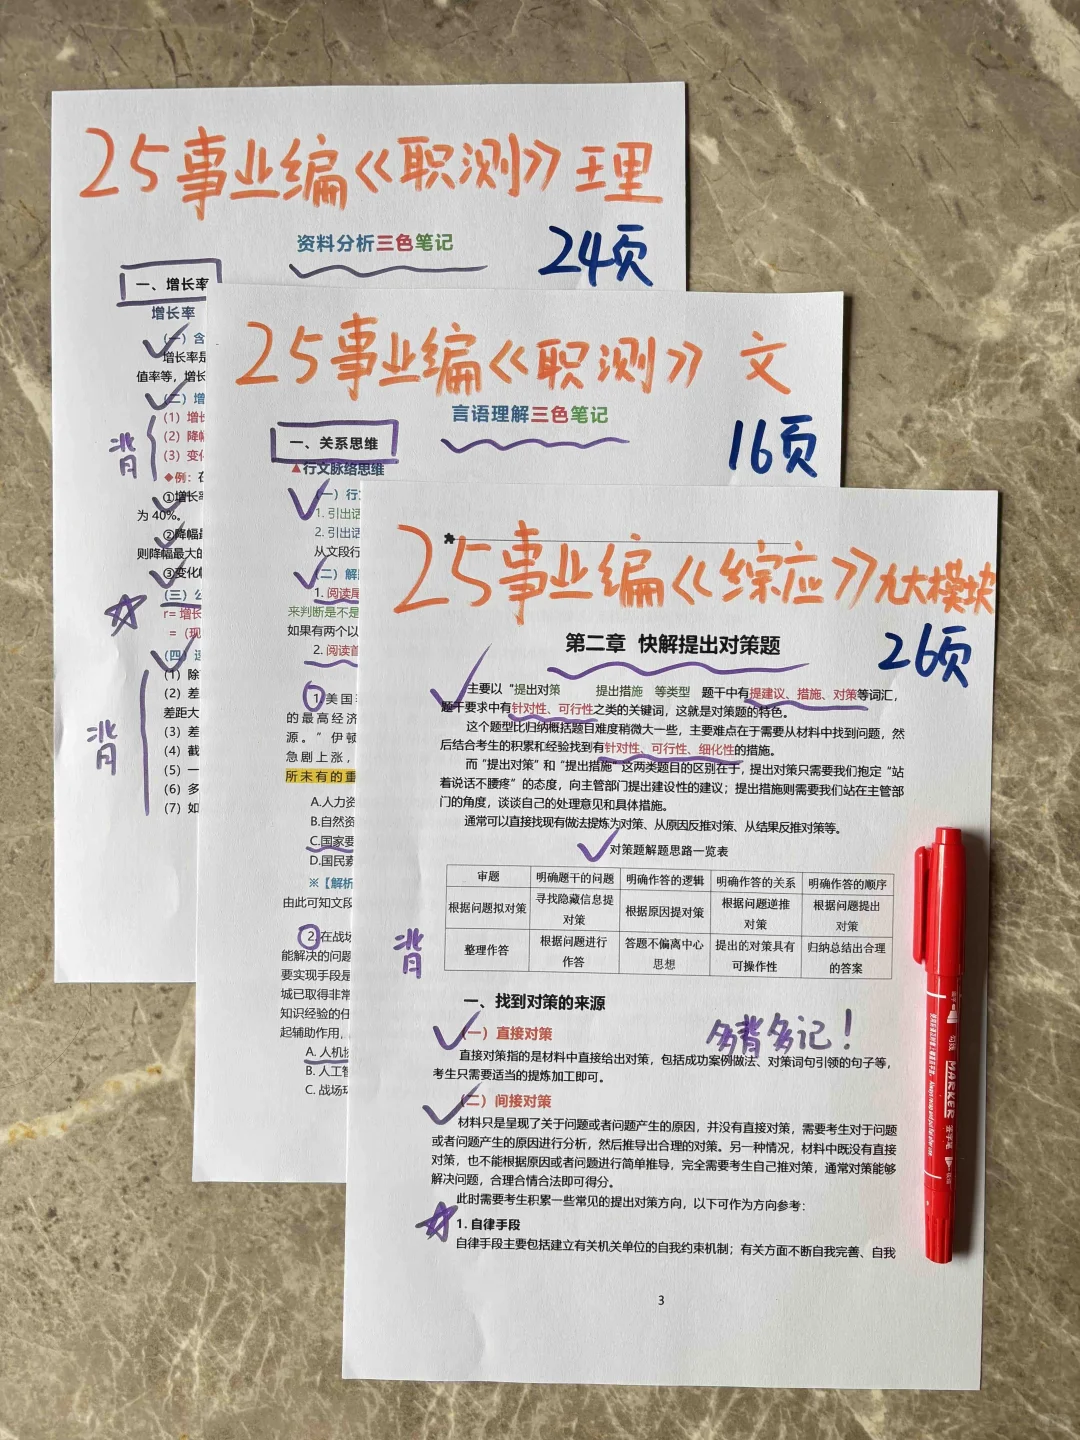 25事业编《职测》理
24页
资料分析三色笔记
一、增长率
增长率
(一)含
增长率是
值率等，增长
(二)增
(1)增长
(2)降幅
(3)变化
背
◆例：在
①增长率
为40%。
②降幅最
则降幅最大的
③变化幅
(三)公
r=增长
=(现
(四)速
(1)除
(2)差
差距大
(3)差
(4)截
(5)一
(6)多
(7)如
背
25事业编《职测》文
16页
言语理解三色笔记
一、关系思维
▲行文脉络思维
(一)行文
1. 引出话
2. 引出话
从文段行
(二)解
1. 阅读尾
来判断是不是
如果有两个以
2. 阅读首
1.美国
的最高经济
源。”伊顿
急剧上涨，
所未有的重
A.人力资
B.自然资
C.国家要
D.国民素
※【解析
由此可知文段
2.在战场
能解决的问题
要实现手段是
城已取得非常
知识经验的任
起辅助作用，
A. 人机协
B. 人工智
C. 战场环
25事业编《综应》九大模块
26页
第二章 快解提出对策题
主要以“提出对策 提出措施 等类型 题干中有提建议、措施、对策等词汇，
题干要求中有针对性、可行性之类的关键词，这就是对策题的特色。
这个题型比归纳概括题目难度稍微大一些，主要难点在于需要从材料中找到问题，然
后结合考生的积累和经验找到有针对性、可行性、细化性的措施。
而“提出对策”和“提出措施”这两类题目的区别在于，提出对策只需要我们抱定“站
着说话不腰疼”的态度，向主管部门提出建设性的建议；提出措施则需要我们站在主管部
门的角度，谈谈自己的处理意见和具体措施。
通常可以直接找现有做法提炼为对策、从原因反推对策、从结果反推对策等。
对策题解题思路一览表
审题 明确题干的问题 明确作答的逻辑 明确作答的关系 明确作答的顺序
根据问题拟对策 寻找隐藏信息提对策 根据原因提对策 根据问题逆推对策 根据问题提出对策
整理作答 根据问题进行作答 答题不偏离中心思想 提出的对策具有可操作性 归纳总结出合理的答案
背
一、找到对策的来源
多背多记！
(一)直接对策
直接对策指的是材料中直接给出对策，包括成功案例做法、对策词句引领的句子等，
考生只需要适当的提炼加工即可。
(二)间接对策
材料只是呈现了关于问题或者问题产生的原因，并没有直接对策，需要考生对于问题
或者问题产生的原因进行分析，然后推导出合理的对策。另一种情况，材料中既没有直接
对策，也不能根据原因或者问题进行简单推导，完全需要考生自己推对策，通常对策能够
解决问题，合理合情合法即可得分。
此时需要考生积累一些常见的提出对策方向，以下可作为方向参考：
1. 自律手段
自律手段主要包括建立有关机关单位的自我约束机制；有关方面不断自我完善、自我
3
MARKER